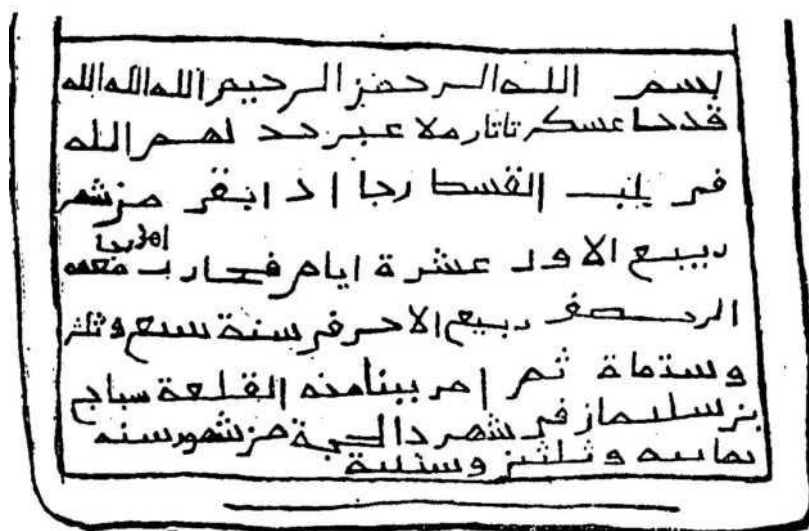 بسم الله الرحمن الرحيم الله الله الله
قد جا عسكر تاتار ملاعين خذ لهم الله
في يلب القسط رجا اذ ابقى من شهر
ربيع الاول عشرة ايام فحارب معهم اهل رجا
الى نصف ربيع الاخر في سنة سبع وثلثين
وستماة ثم امر ببنا هذه القلعة سباج
بن سليمان في شهر ذا الحجة من شهور سنة
ثمانية وثلثين وستماية